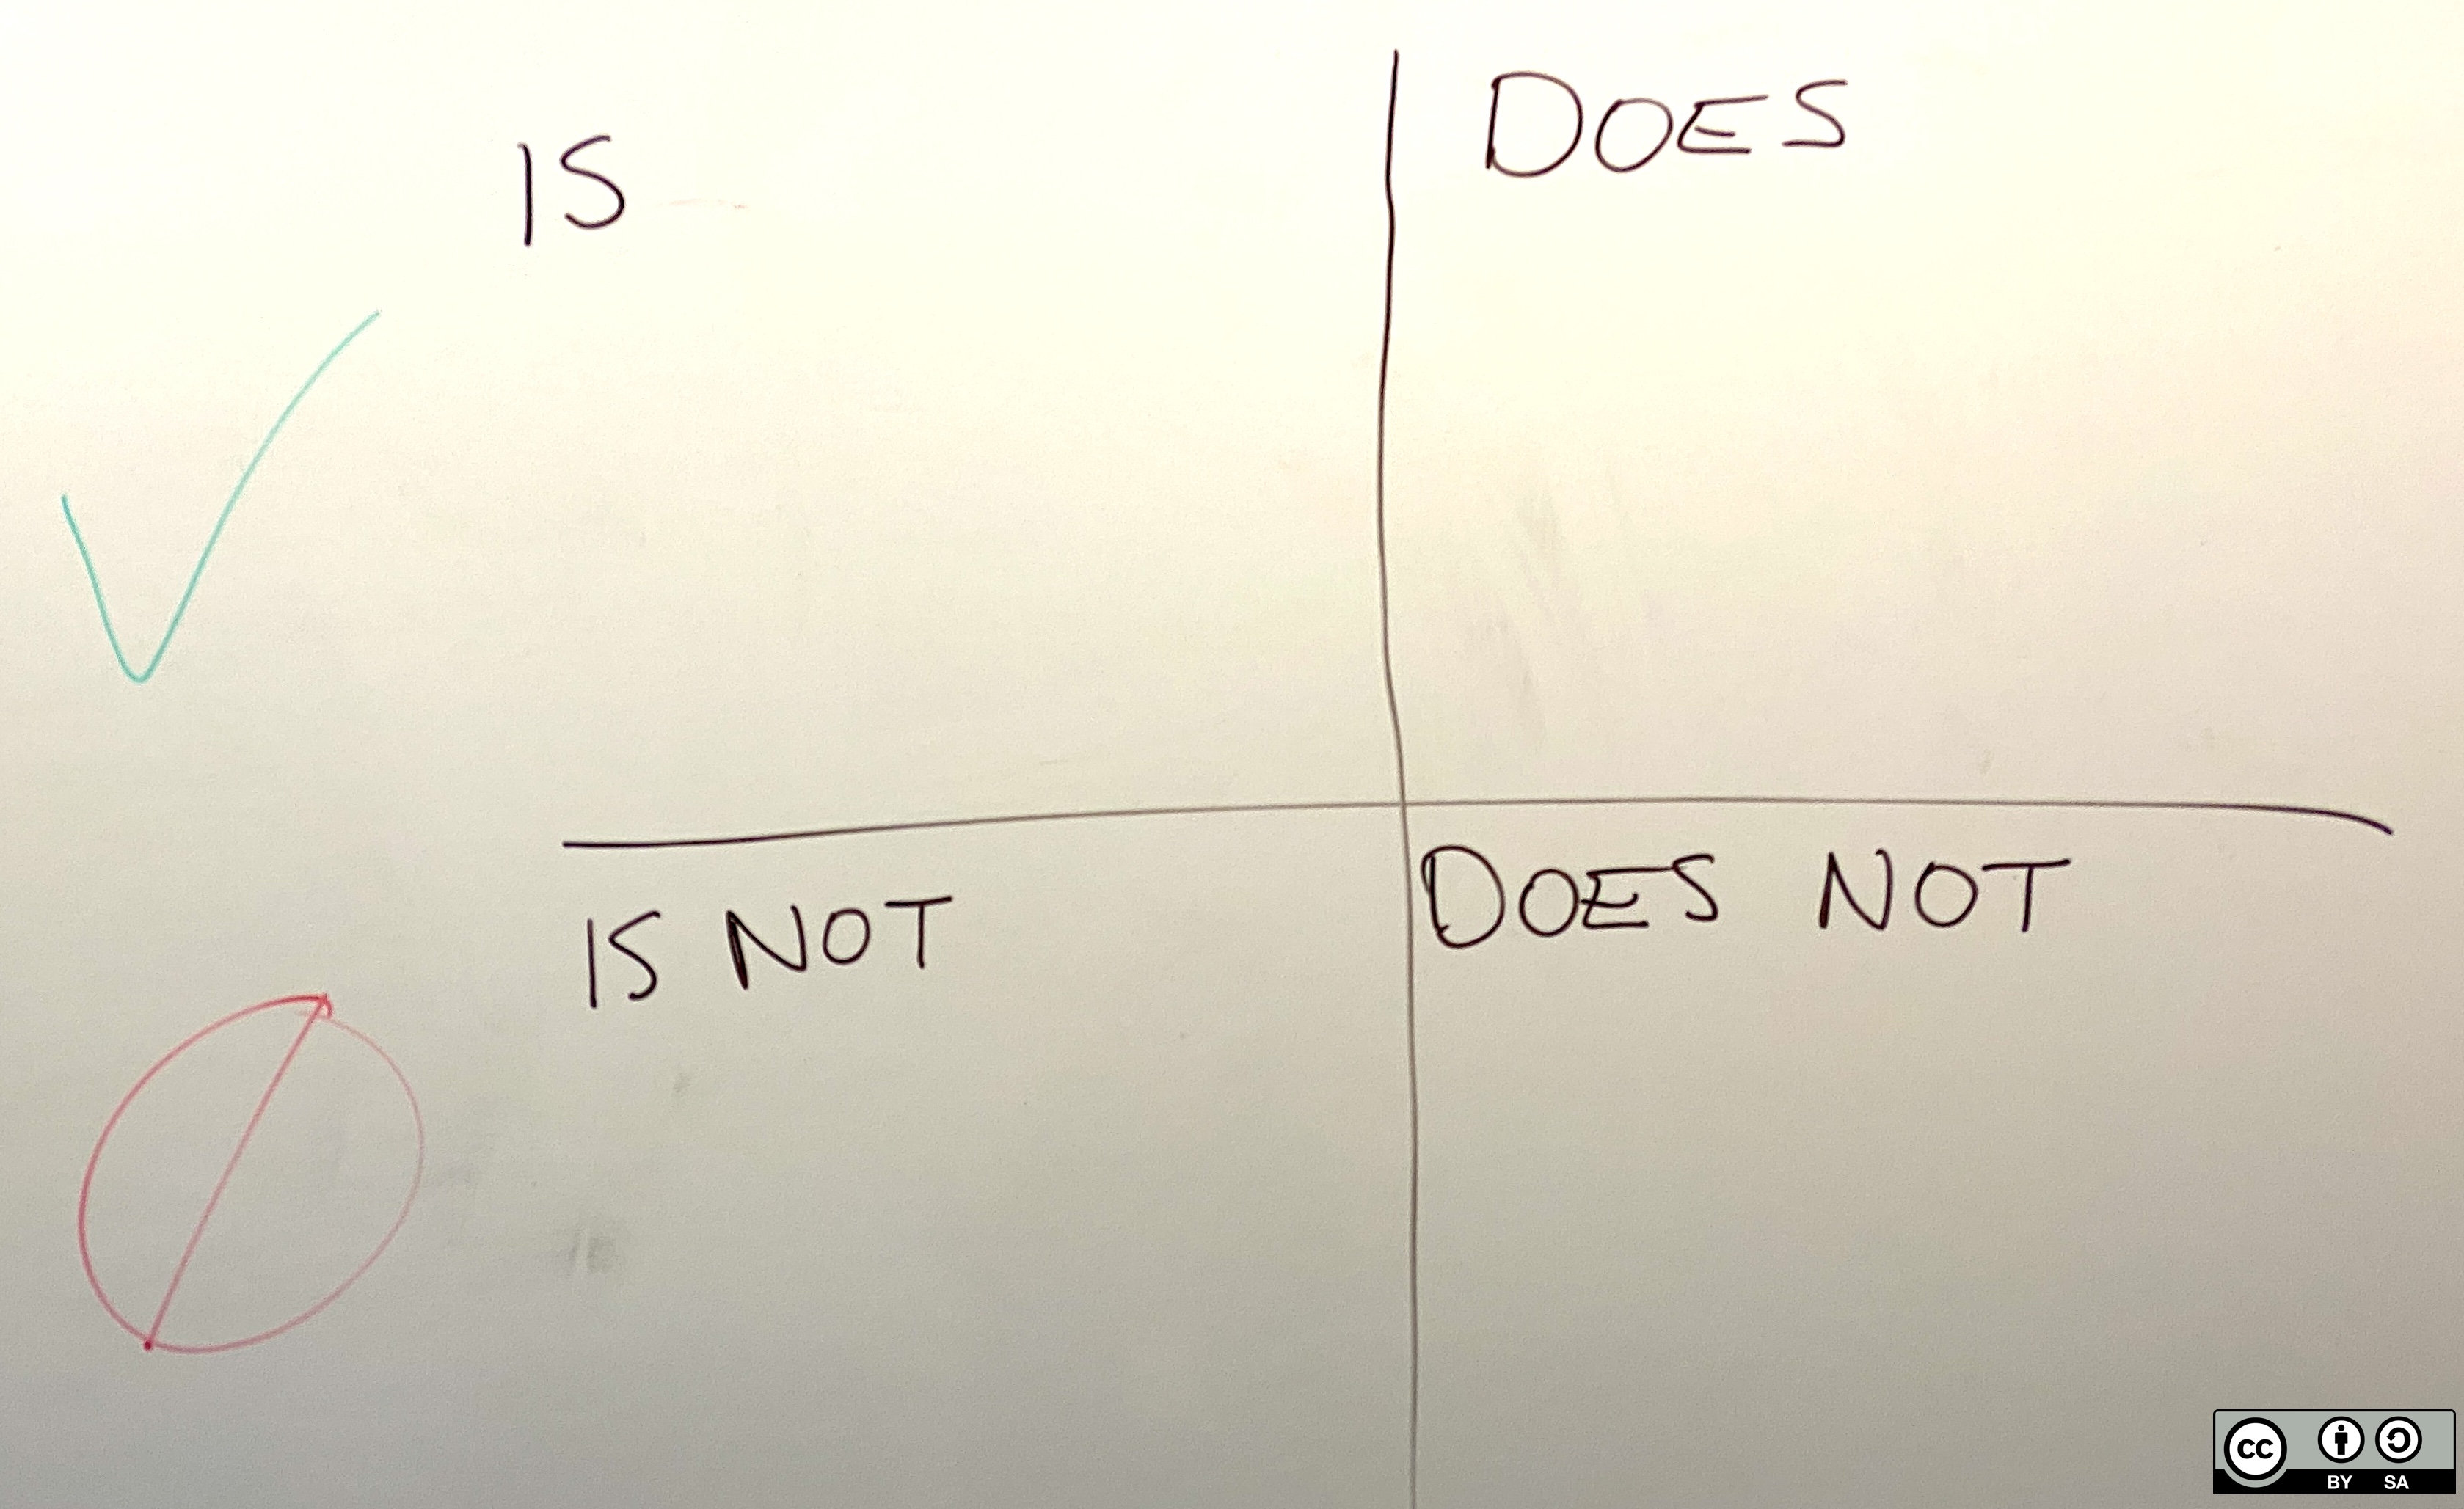 IS
DOES
IS NOT
DOES NOT
CC BY SA